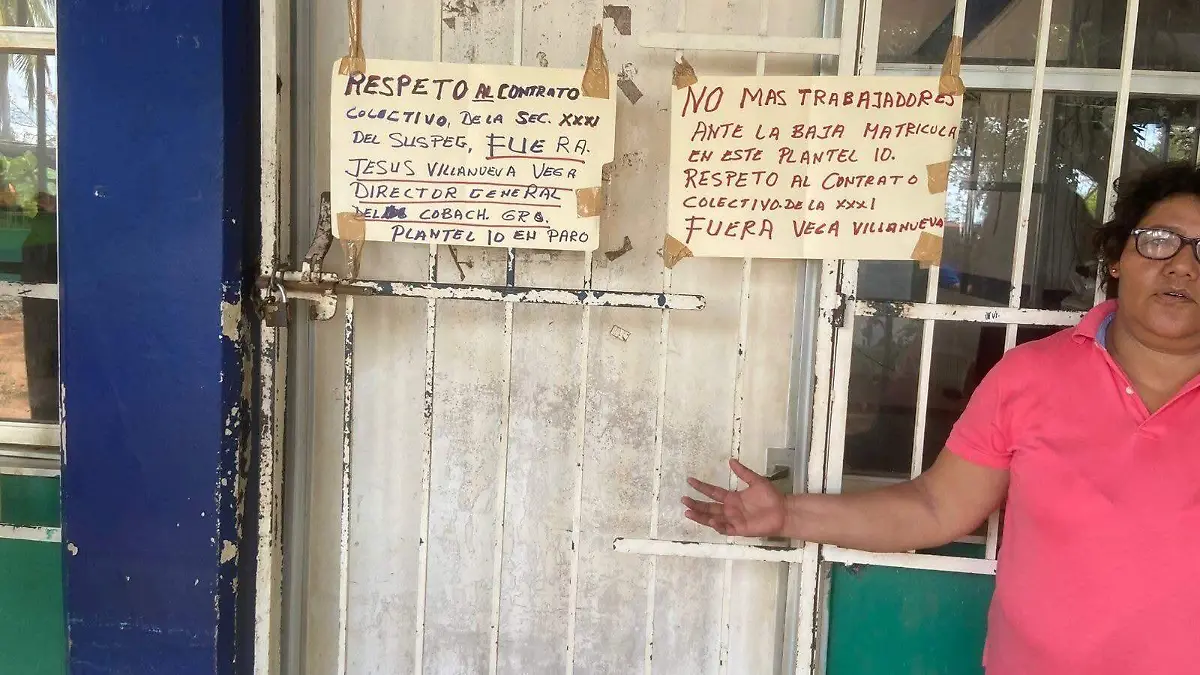 RESPETO AL CONTRATO
COLECTIVO, DE LA SEC. XXXI
DEL SUSPEG, FUERA.
JESUS VILLANUEVA VEGA
DIRECTOR GENERAL
DEL COBACH. GRO.
PLANTEL 10 EN PARO
NO MAS TRABAJADORES
ANTE LA BAJA MATRICULA
EN ESTE PLANTEL 10.
RESPETO AL CONTRATO
COLECTIVO. DE LA XXXI
FUERA VEGA VILLANUEVA